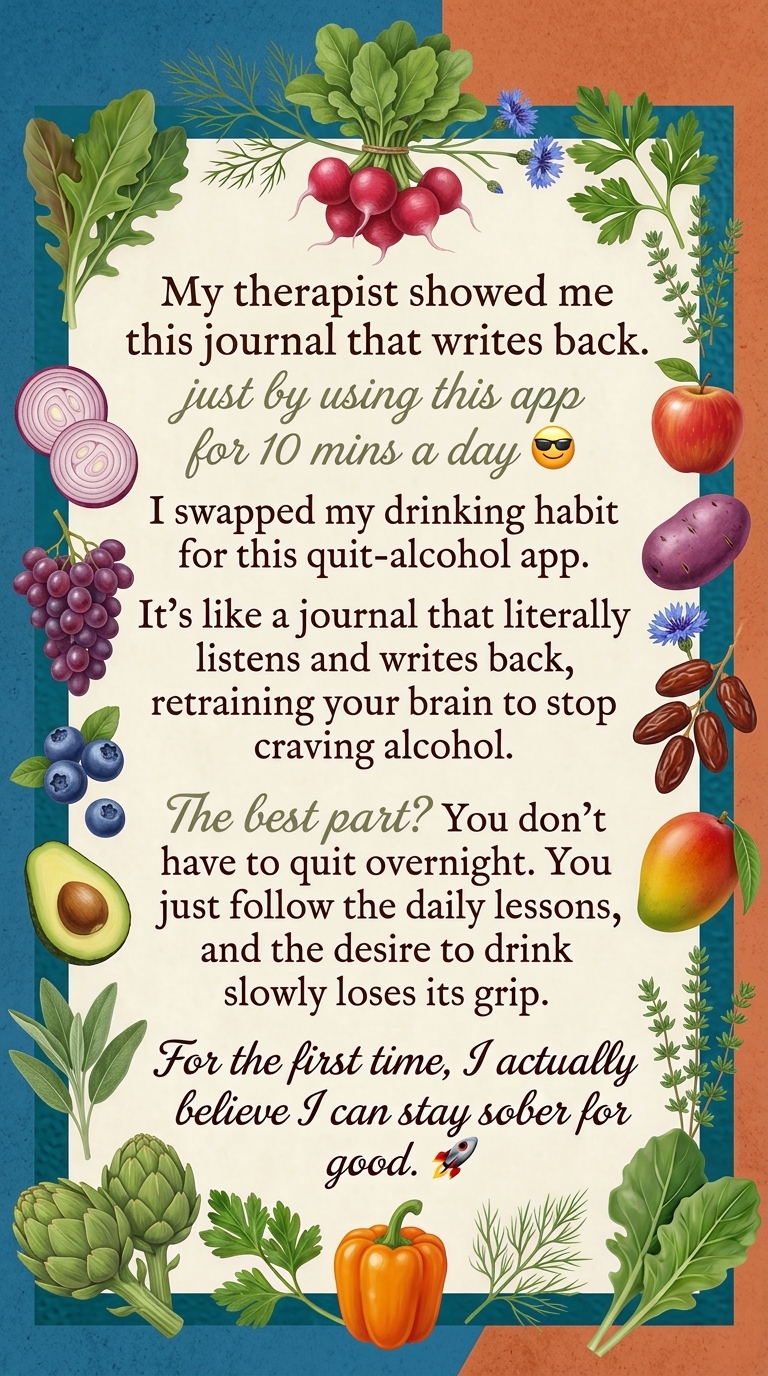 My therapist showed me
this journal that writes back.
just by using this app
for 10 mins a day 😎
I swapped my drinking habit
for this quit-alcohol app.
It's like a journal that literally
listens and writes back,
retraining your brain to stop
craving alcohol.
The best part? You don't
have to quit overnight. You
just follow the daily lessons,
and the desire to drink
slowly loses its grip.
For the first time, I actually
believe I can stay sober for
good. 🚀